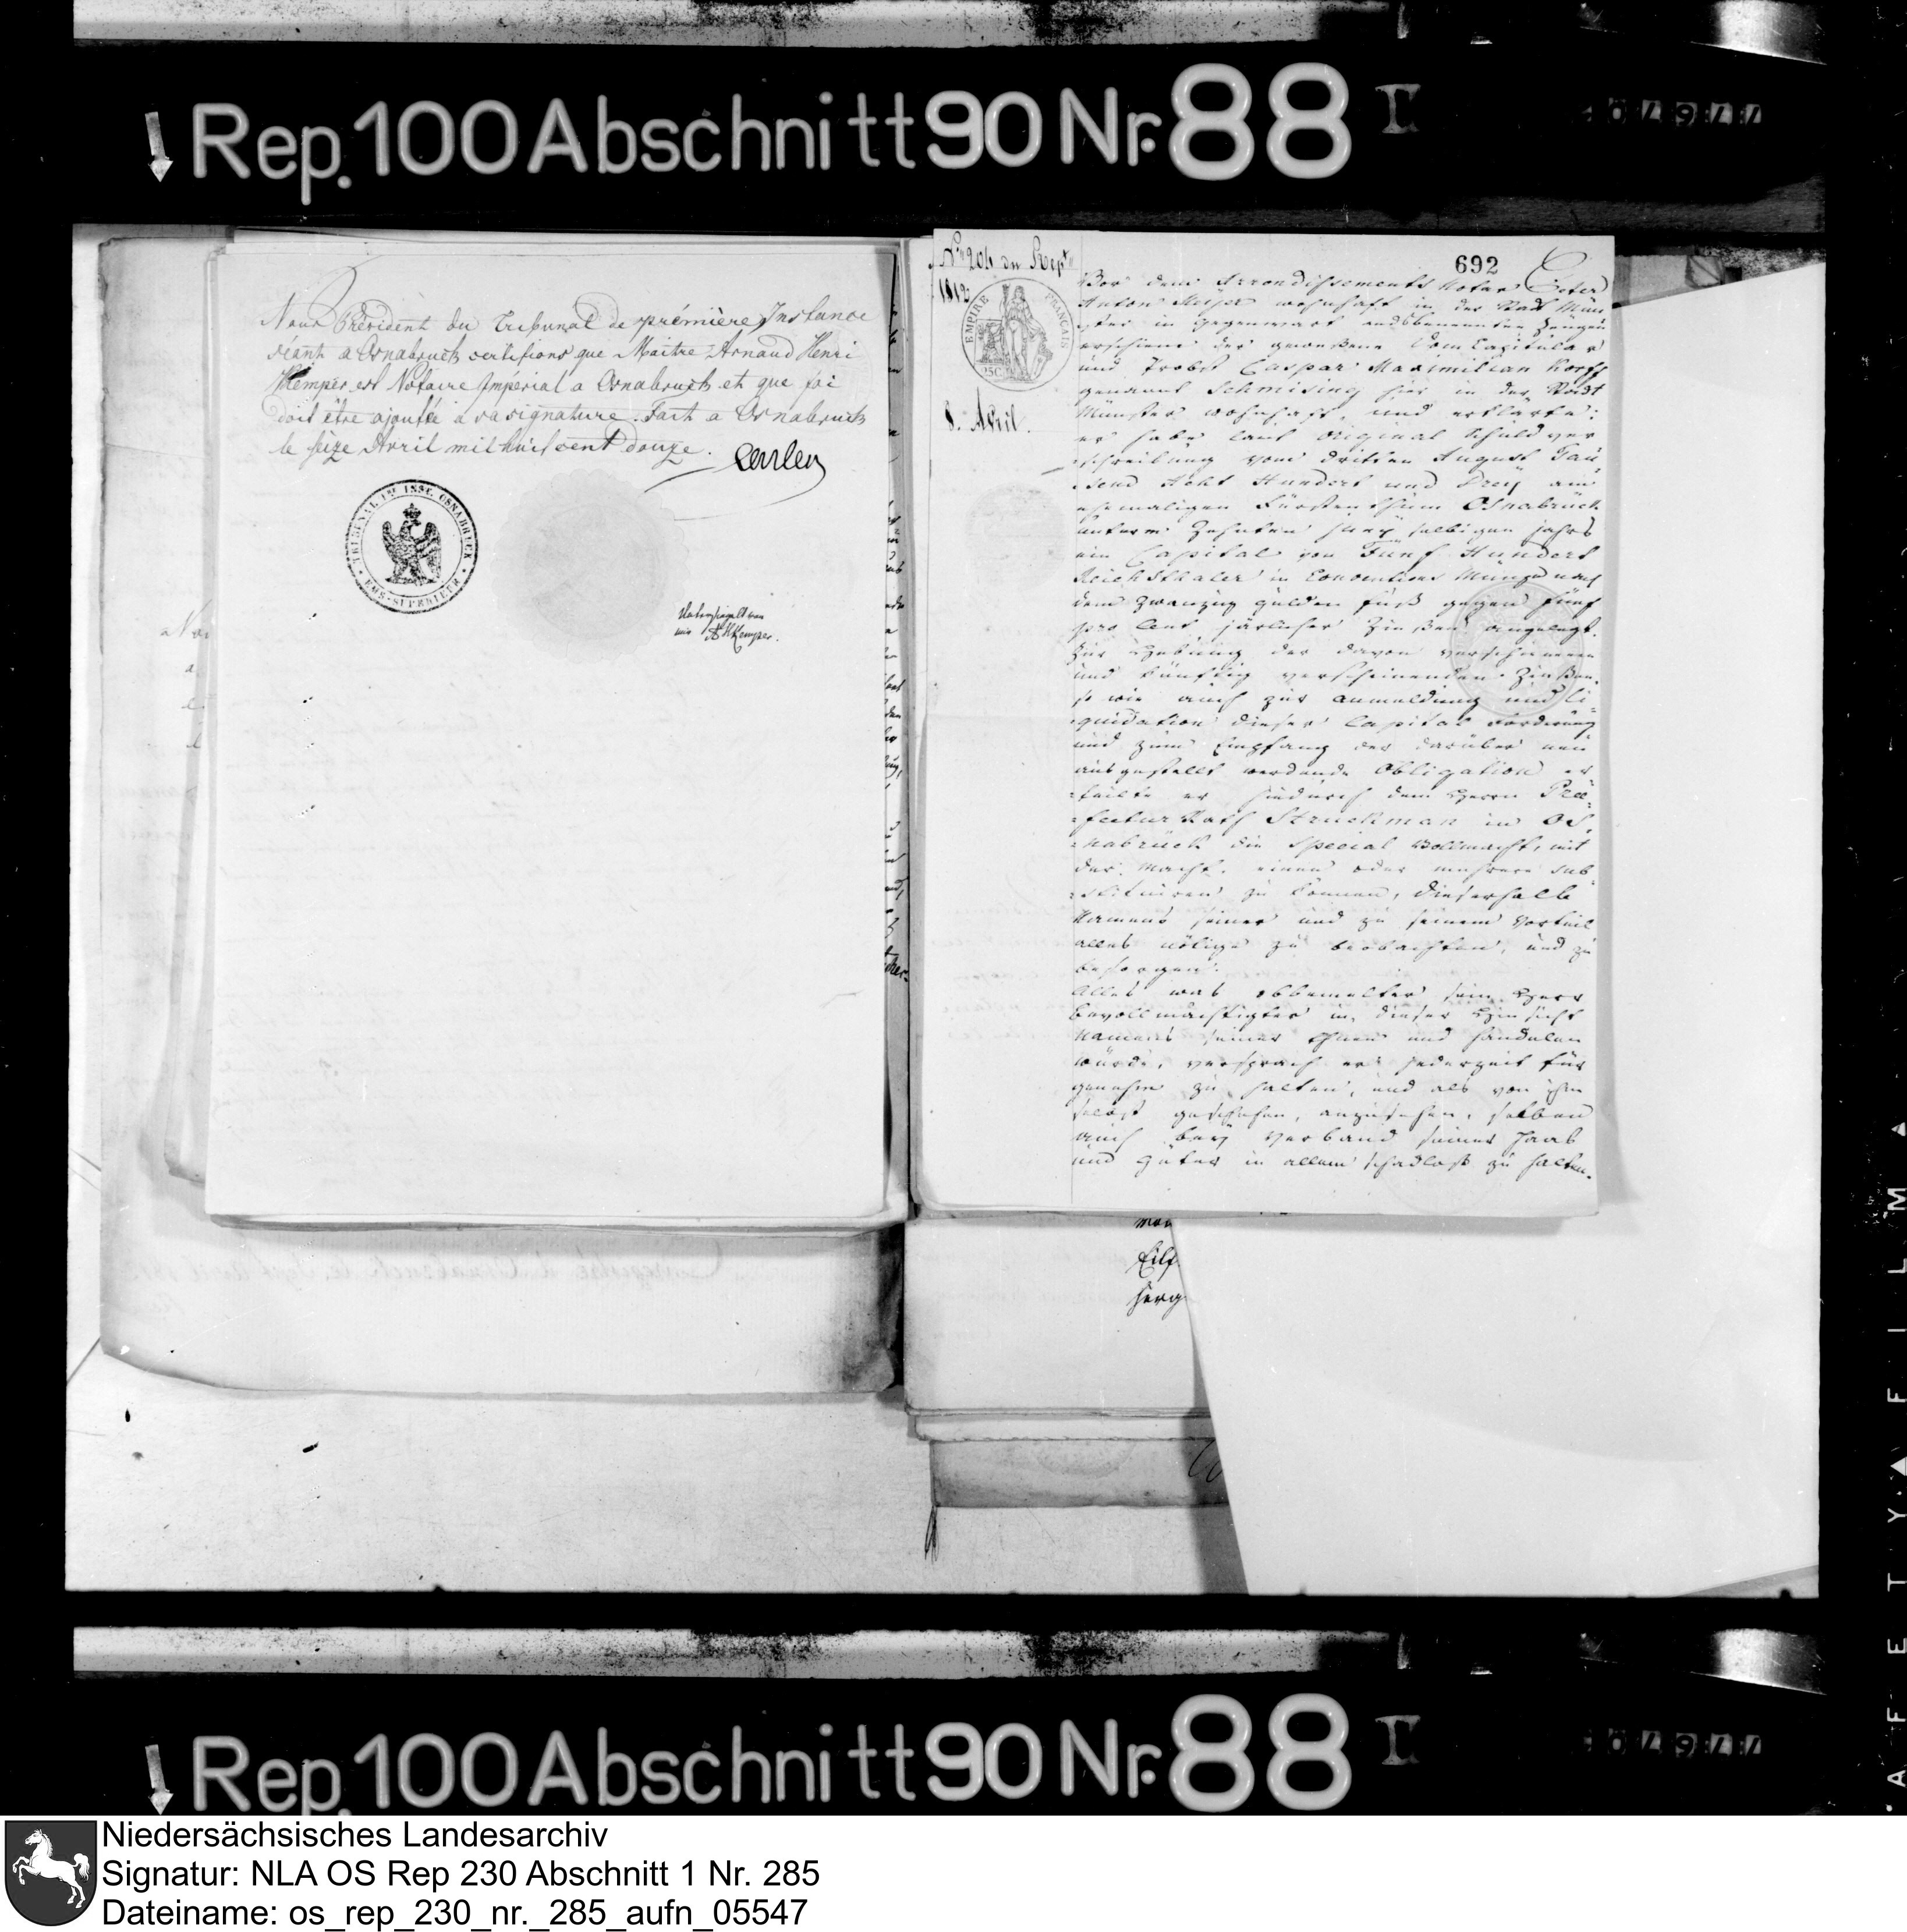 Rep. 100 Abschnitt 90 Nr. 88 I
Nous Président du Tribunal de première Instance
séant a Osnabruck certifions que Maitre Arnaud Henri
Kemper est Notaire Impérial a Osnabruck et que foi
doit être ajoutée a sa signature. Fait a Osnabruck
le seize Avril mil huit cent douze.
TRIBUNAL 1RE INST. OSNABRUCK
EMS-SUPERIEUR
Untersiegelt von
mir AHKemper.
692
No 204 du Rept
1812
EMPIRE FRANÇAIS
25C.
8. April.
Vor dem Arrondissements Notar Peter
Anton wohnhaft in der Stadt Mün
ster in Gegenwart endsbenennten Zeugen
erschiene der gewesene Domcapitular
und Probst Caspar Maximilian Korff
genannt Schmising hier in der Stadt
Münster wohnhaft, und erklärte:
er habe laut original Schuld ver
schreibung vom dritten August Tau
send Acht Hundert und Dreÿ am
ehemaligen Fürstenthum Osnabrück
unterm Zehnten selbigen jahrs
ein Capital von Fünf Hundert
Reichsthaler in Conventions Münze nach
dem zwanzig gulden fuß gegen fünf
pro Cent järlicher Zinßen angelegt.
Zur Hebung der davon verschienenen
und künftig verscheinenden Zinßen,
so wie auch zur anmeldung und li
quidation dieser Capital Forderung
und zum Empfang der darüber neu
ausgestellt werdende Obligation er
teilte er hiedurch dem Herrn Prä
fectur Rath Struckman in Os
nabrück die Special Vollmacht, mit
der Macht, einen oder mehrere sub
stituiren zu können, dieserhalb
Namens seiner und zu seinem Vorteil
alles nötige zu beobachten, und zu
besorgen.
Alles was obbemelter sein Herr
bevollmächtigter in dieser Hinsicht
Namens seiner thuen und handelen
würde, versprach er jederzeit für
genehm zu halten, und als von ihm
selbst geschehen, anzusehen, selben
auch beÿ Verband seiner Haab
und Güter in allem schadloß zu halten.
Rep. 100 Abschnitt 90 Nr. 88 I
Niedersächsisches Landesarchiv
Signatur: NLA OS Rep 230 Abschnitt 1 Nr. 285
Dateiname: os_rep_230_nr._285_aufn_05547